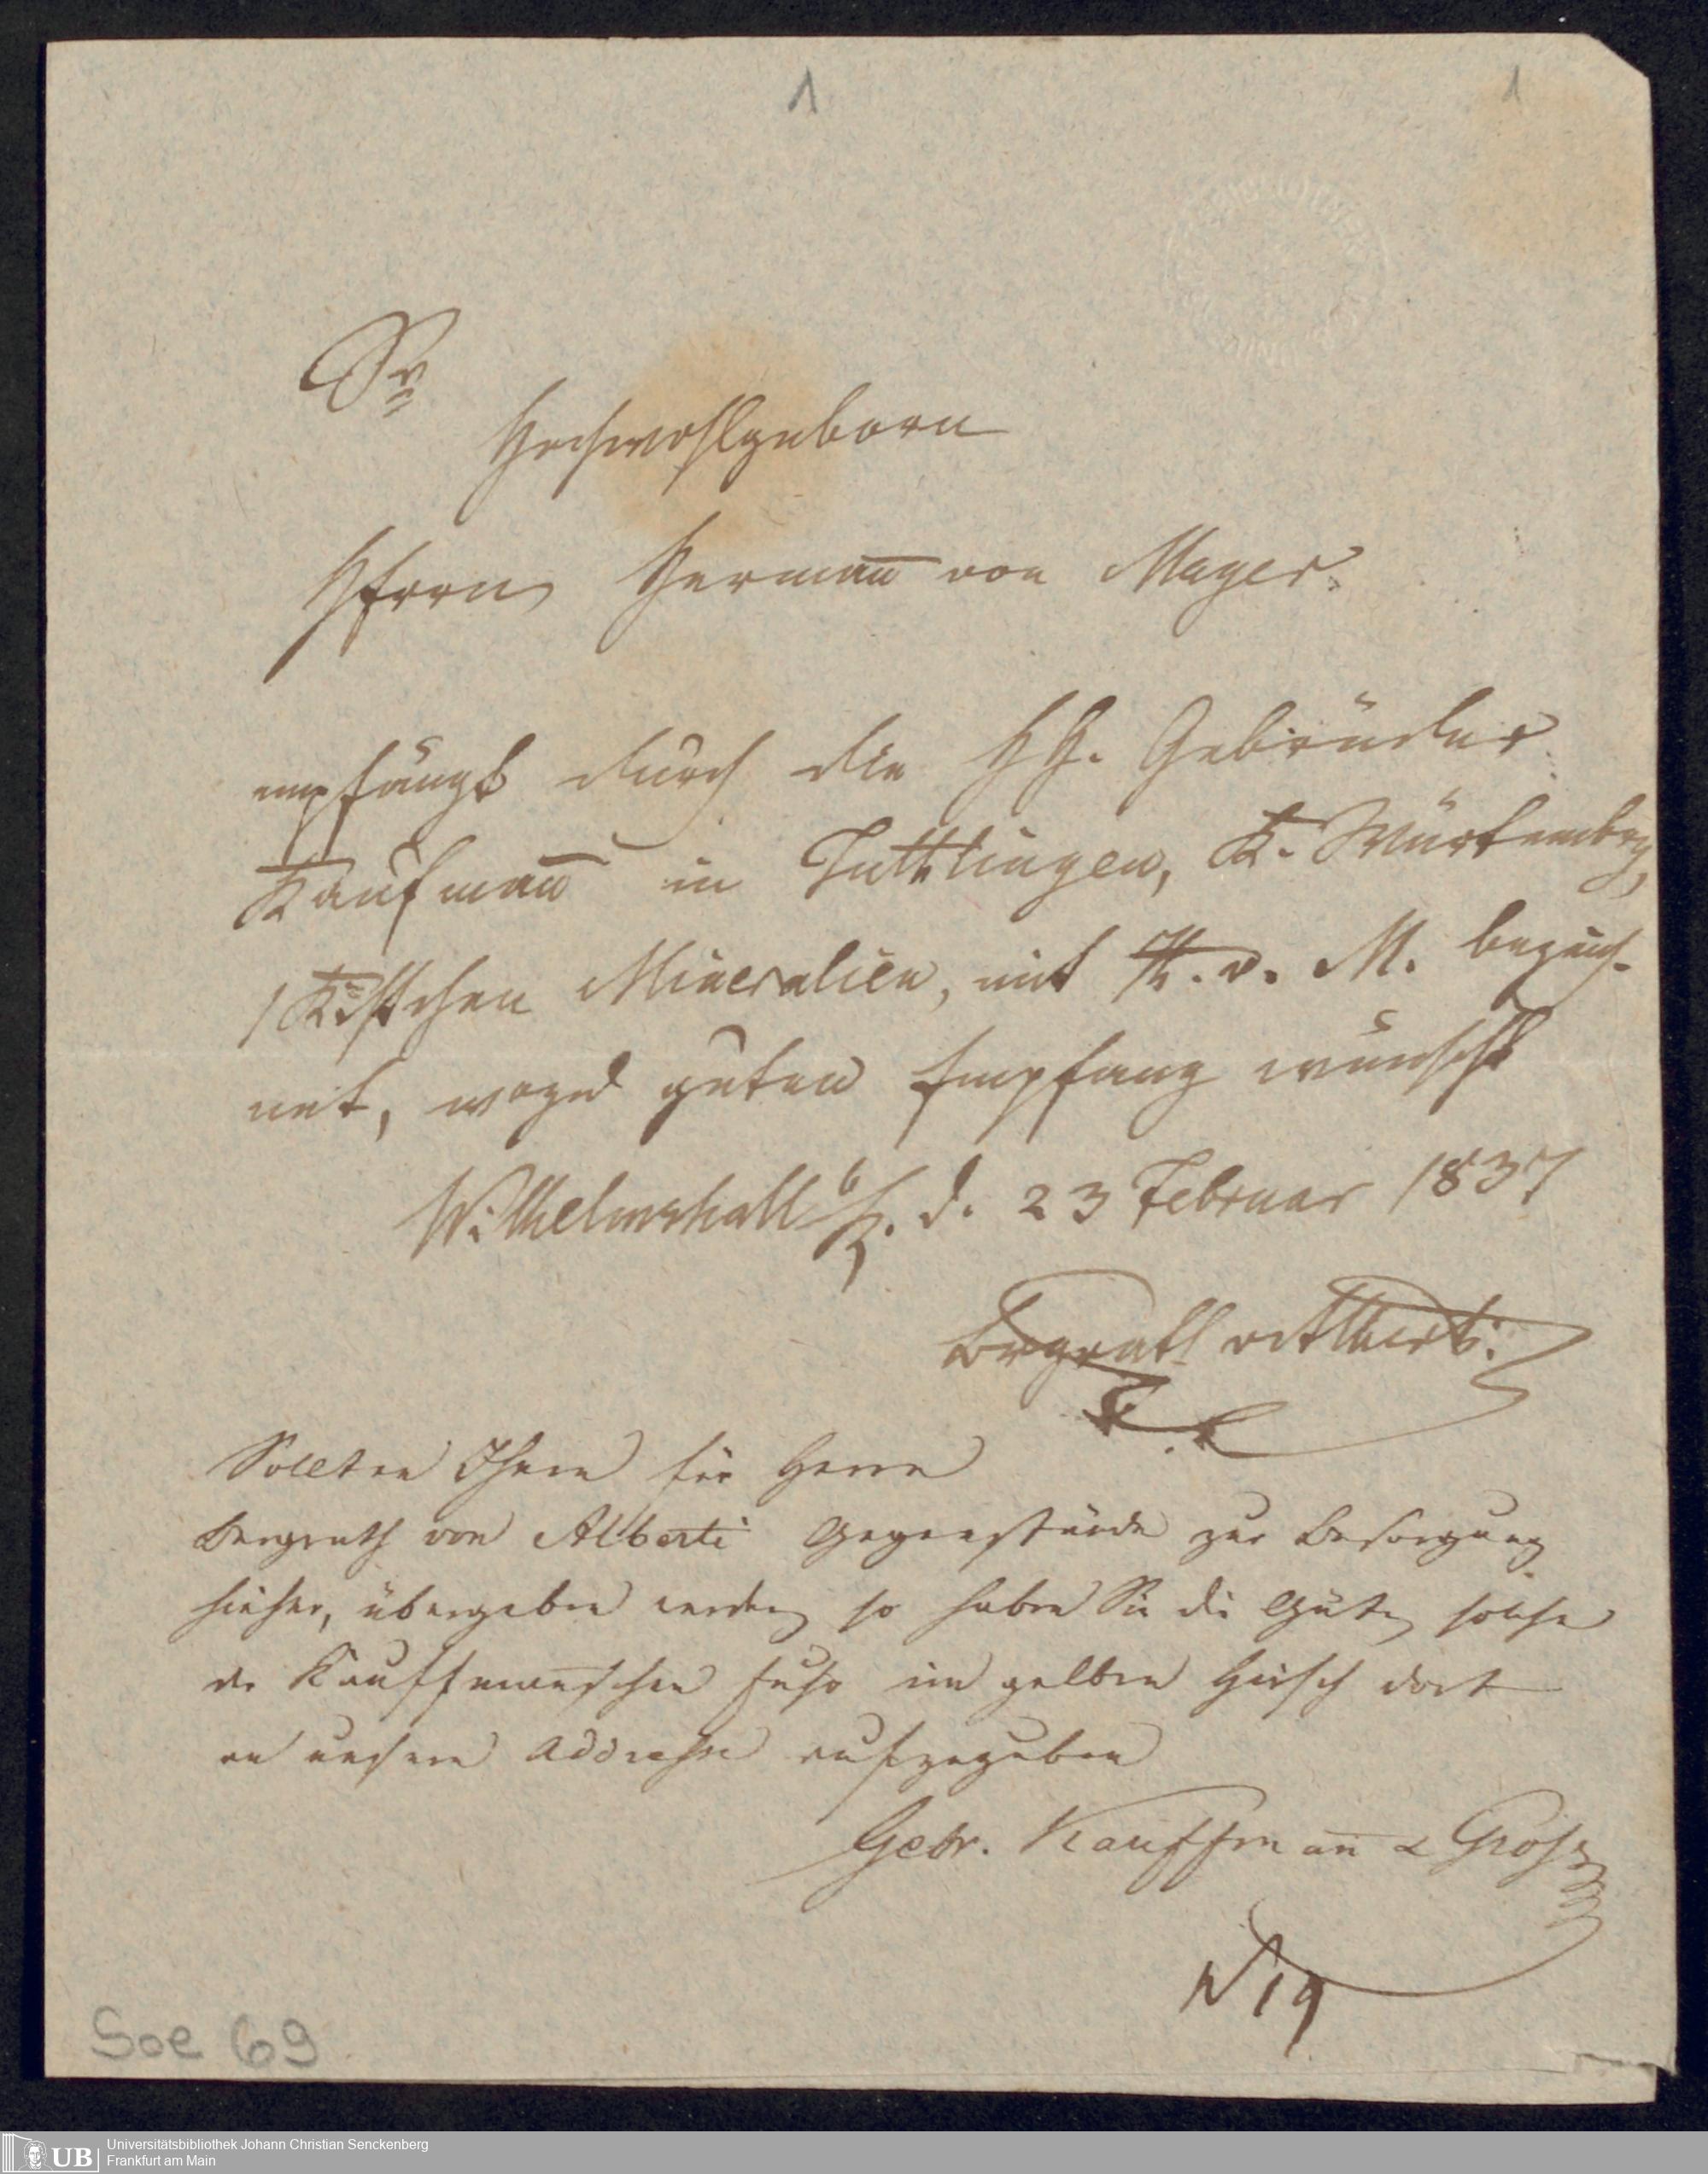 1 1
Sr
Hochwohlgeborn
Herrn Hermañ von Mayer
empfängt durch die HH. Gebrüder
Kaufmañ in Tuttlingen, K. Würtemberg,
1 Kistchen Mineralien, mit H. v. M. bezeich-
net, wozu guten Empfang wünscht
Wilhelmshall d. 23 Februar 1837
Bergrath v Alberti.
Sollten Ihnen für Herrn
Bergrath von Alberti Gegenstände zur Besorgung
hieher, übergeben werden so haben Sie die Güte solche
der Kauffmañschen Fuhr im gelben Hirsch dort
an unsere Addresse aufzugeben
Gebr. Kauffmañ & Groß
N 19
Soe 69
UB Universitätsbibliothek Johann Christian Senckenberg
Frankfurt am Main